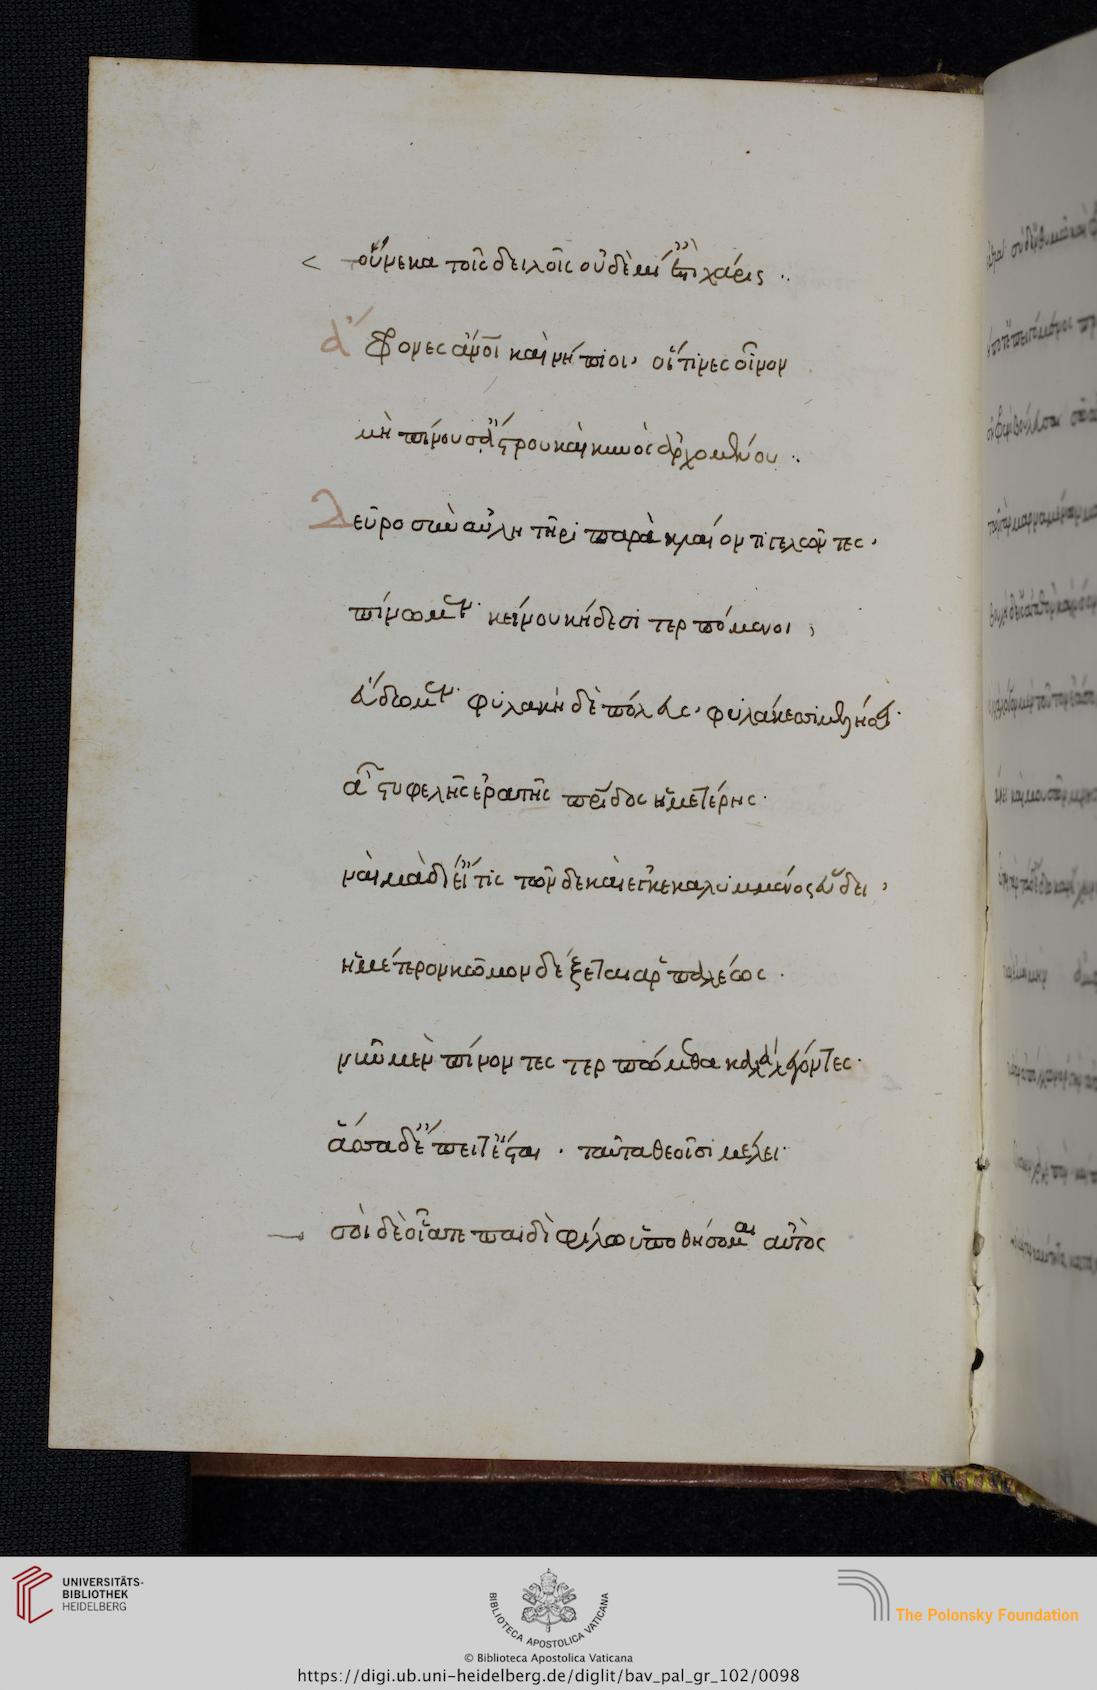 < οὕνεκα τοῖς δειλοῖς οὐδεμί' ἔπι χάρις ..
ἄφρονες ἄνθρωποι καὶ νήπιοι, οἵ τινες οἶνον
μὴ πίνουσ' ἄστρου καὶ κυνὸς ἀρχομένου ..
Δεῦρο σὺν αὐλητῆρι παρὰ κλαίοντι γελῶντες,
πίνωμεν κείνου κήδεσι τερπόμενοι ;
εὕδωμεν φυλακὴ δὲ πόλευς, φυλάκεσσι μελήσει
ἀστυφελῆς ἐρατῆς πατρίδος ἡμετέρης
ναὶ μὰ δί' εἴ τις τῶνδε καὶ ἐγκεκαλυμμένος εὕδει,
ἡμέτερον κῶμον δέξεται ἁρπαλέως
νῦν μὲν πίνοντες τερπώμεθα καλὰ λέγοντες
ἄσσα δ' ἔπειτ' ἔσται · ταῦτα θεοῖσι μέλει
σοὶ δὲ οἷάπε παιδὶ φίλω ὑποθήσομαι αὐτὸς
UNIVERSITÄTS-
BIBLIOTHEK
HEIDELBERG
BIBLIOTECA APOSTOLICA VATICANA
The Polonsky Foundation
© Biblioteca Apostolica Vaticana
https://digi.ub.uni-heidelberg.de/diglit/bav_pal_gr_102/0098